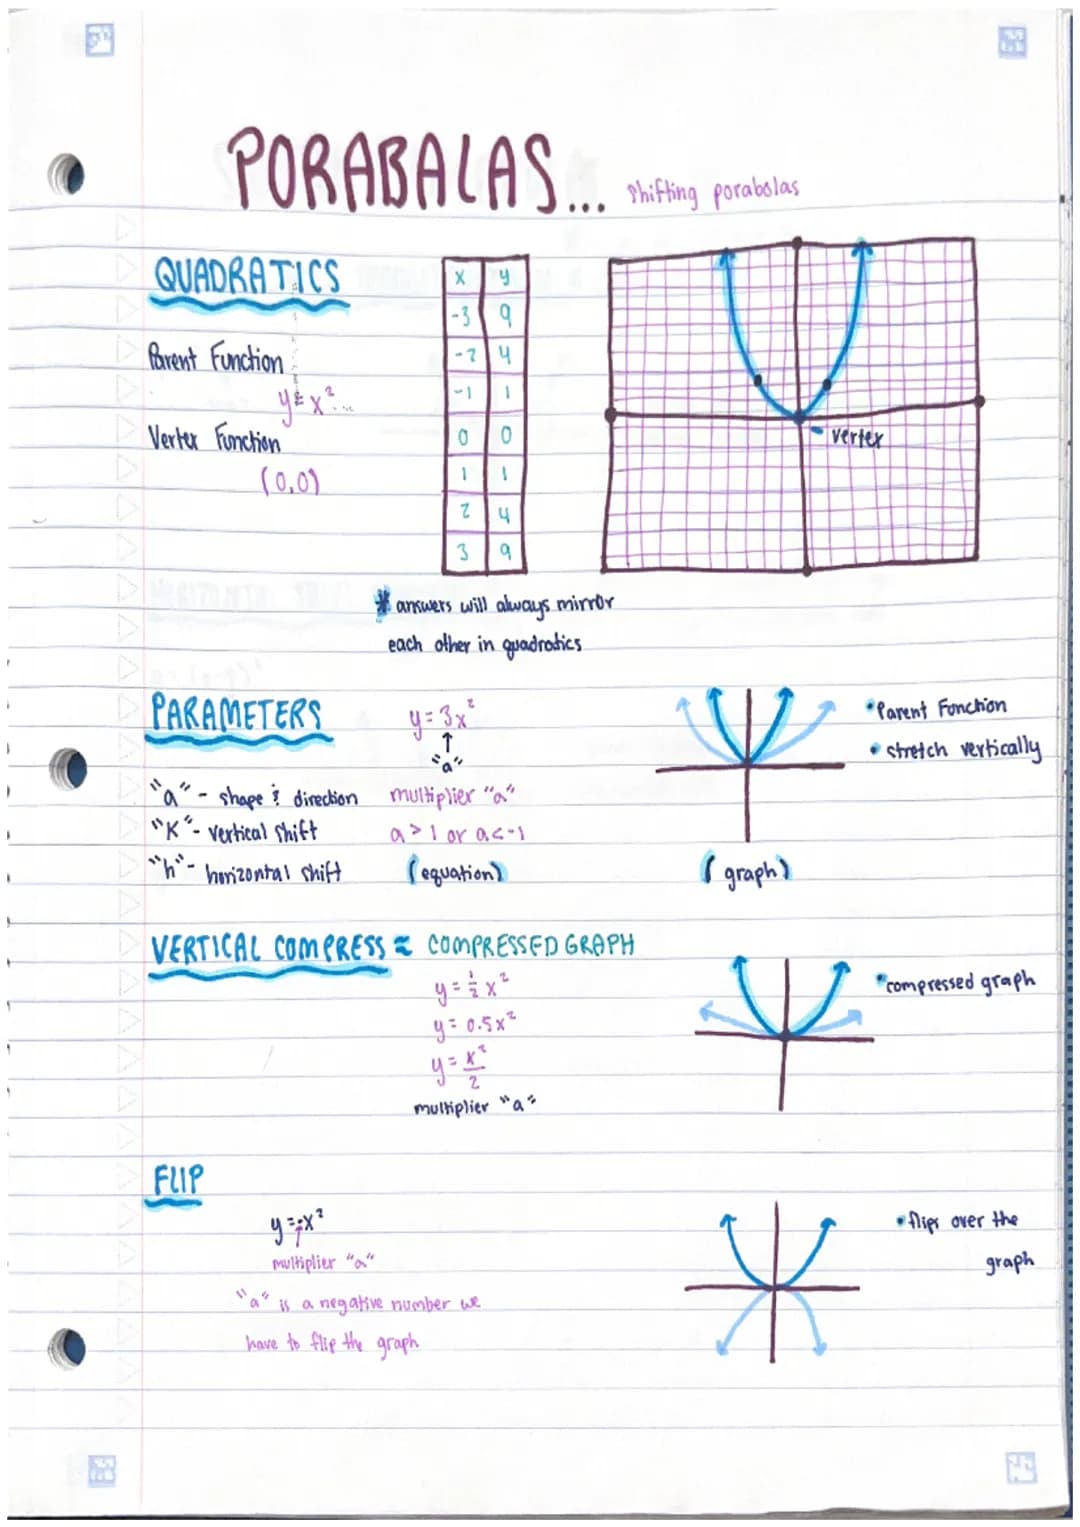 PORABALAS... shifting porabolas
QUADRATICS
Parent Function
y = x²...
Vertex Function
(0,0)
x y
-3 9
-2 4
-1 1
0 0
1 1
2 4
3 9
vertex
* answers will always mirror
each other in quadratics
PARAMETERS
"a" - shape & direction
"K" - vertical shift
"h" - horizontal shift
y = 3x²
↑
"a"
multiplier "a"
a > 1 or a < -1
(equation)
(graph)
• Parent Function
• stretch vertically
VERTICAL COMPRESS = COMPRESSED GRAPH
y = ½ x²
y = 0.5x²
y = x²/2
multiplier "a"
• compressed graph
FLIP
y = -x²
multiplier "a"
"a" is a negative number we
have to flip the graph
• flips over the
graph